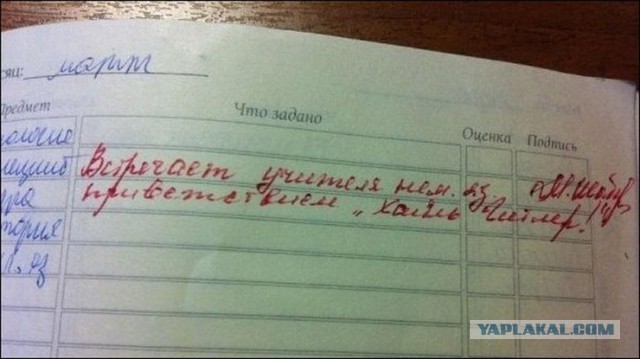 яц: март
Предмет Что задано Оценка Подпись
ология
Встречает учителя нем. яз.
приветствием „Хайль Гитлер!"
тория
яз
YAPLAKAL.COM